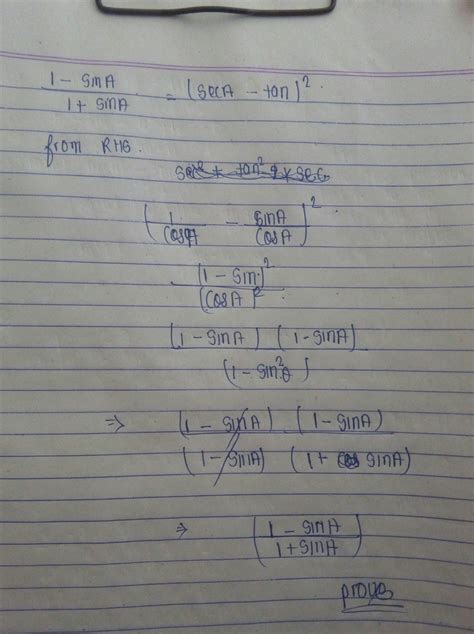 1 - sinA / 1 + sinA = (secA - tan)²
from RHS.
(1/cosA - sinA/cosA)²
(1 - sin)² / (cosA)²
(1 - sinA) (1 - sinA) / (1 - sin²θ)
⇒ (1 - sinA) (1 - sinA) / (1 - sinA) (1 + sinA)
⇒ (1 - sinA / 1 + sinA)